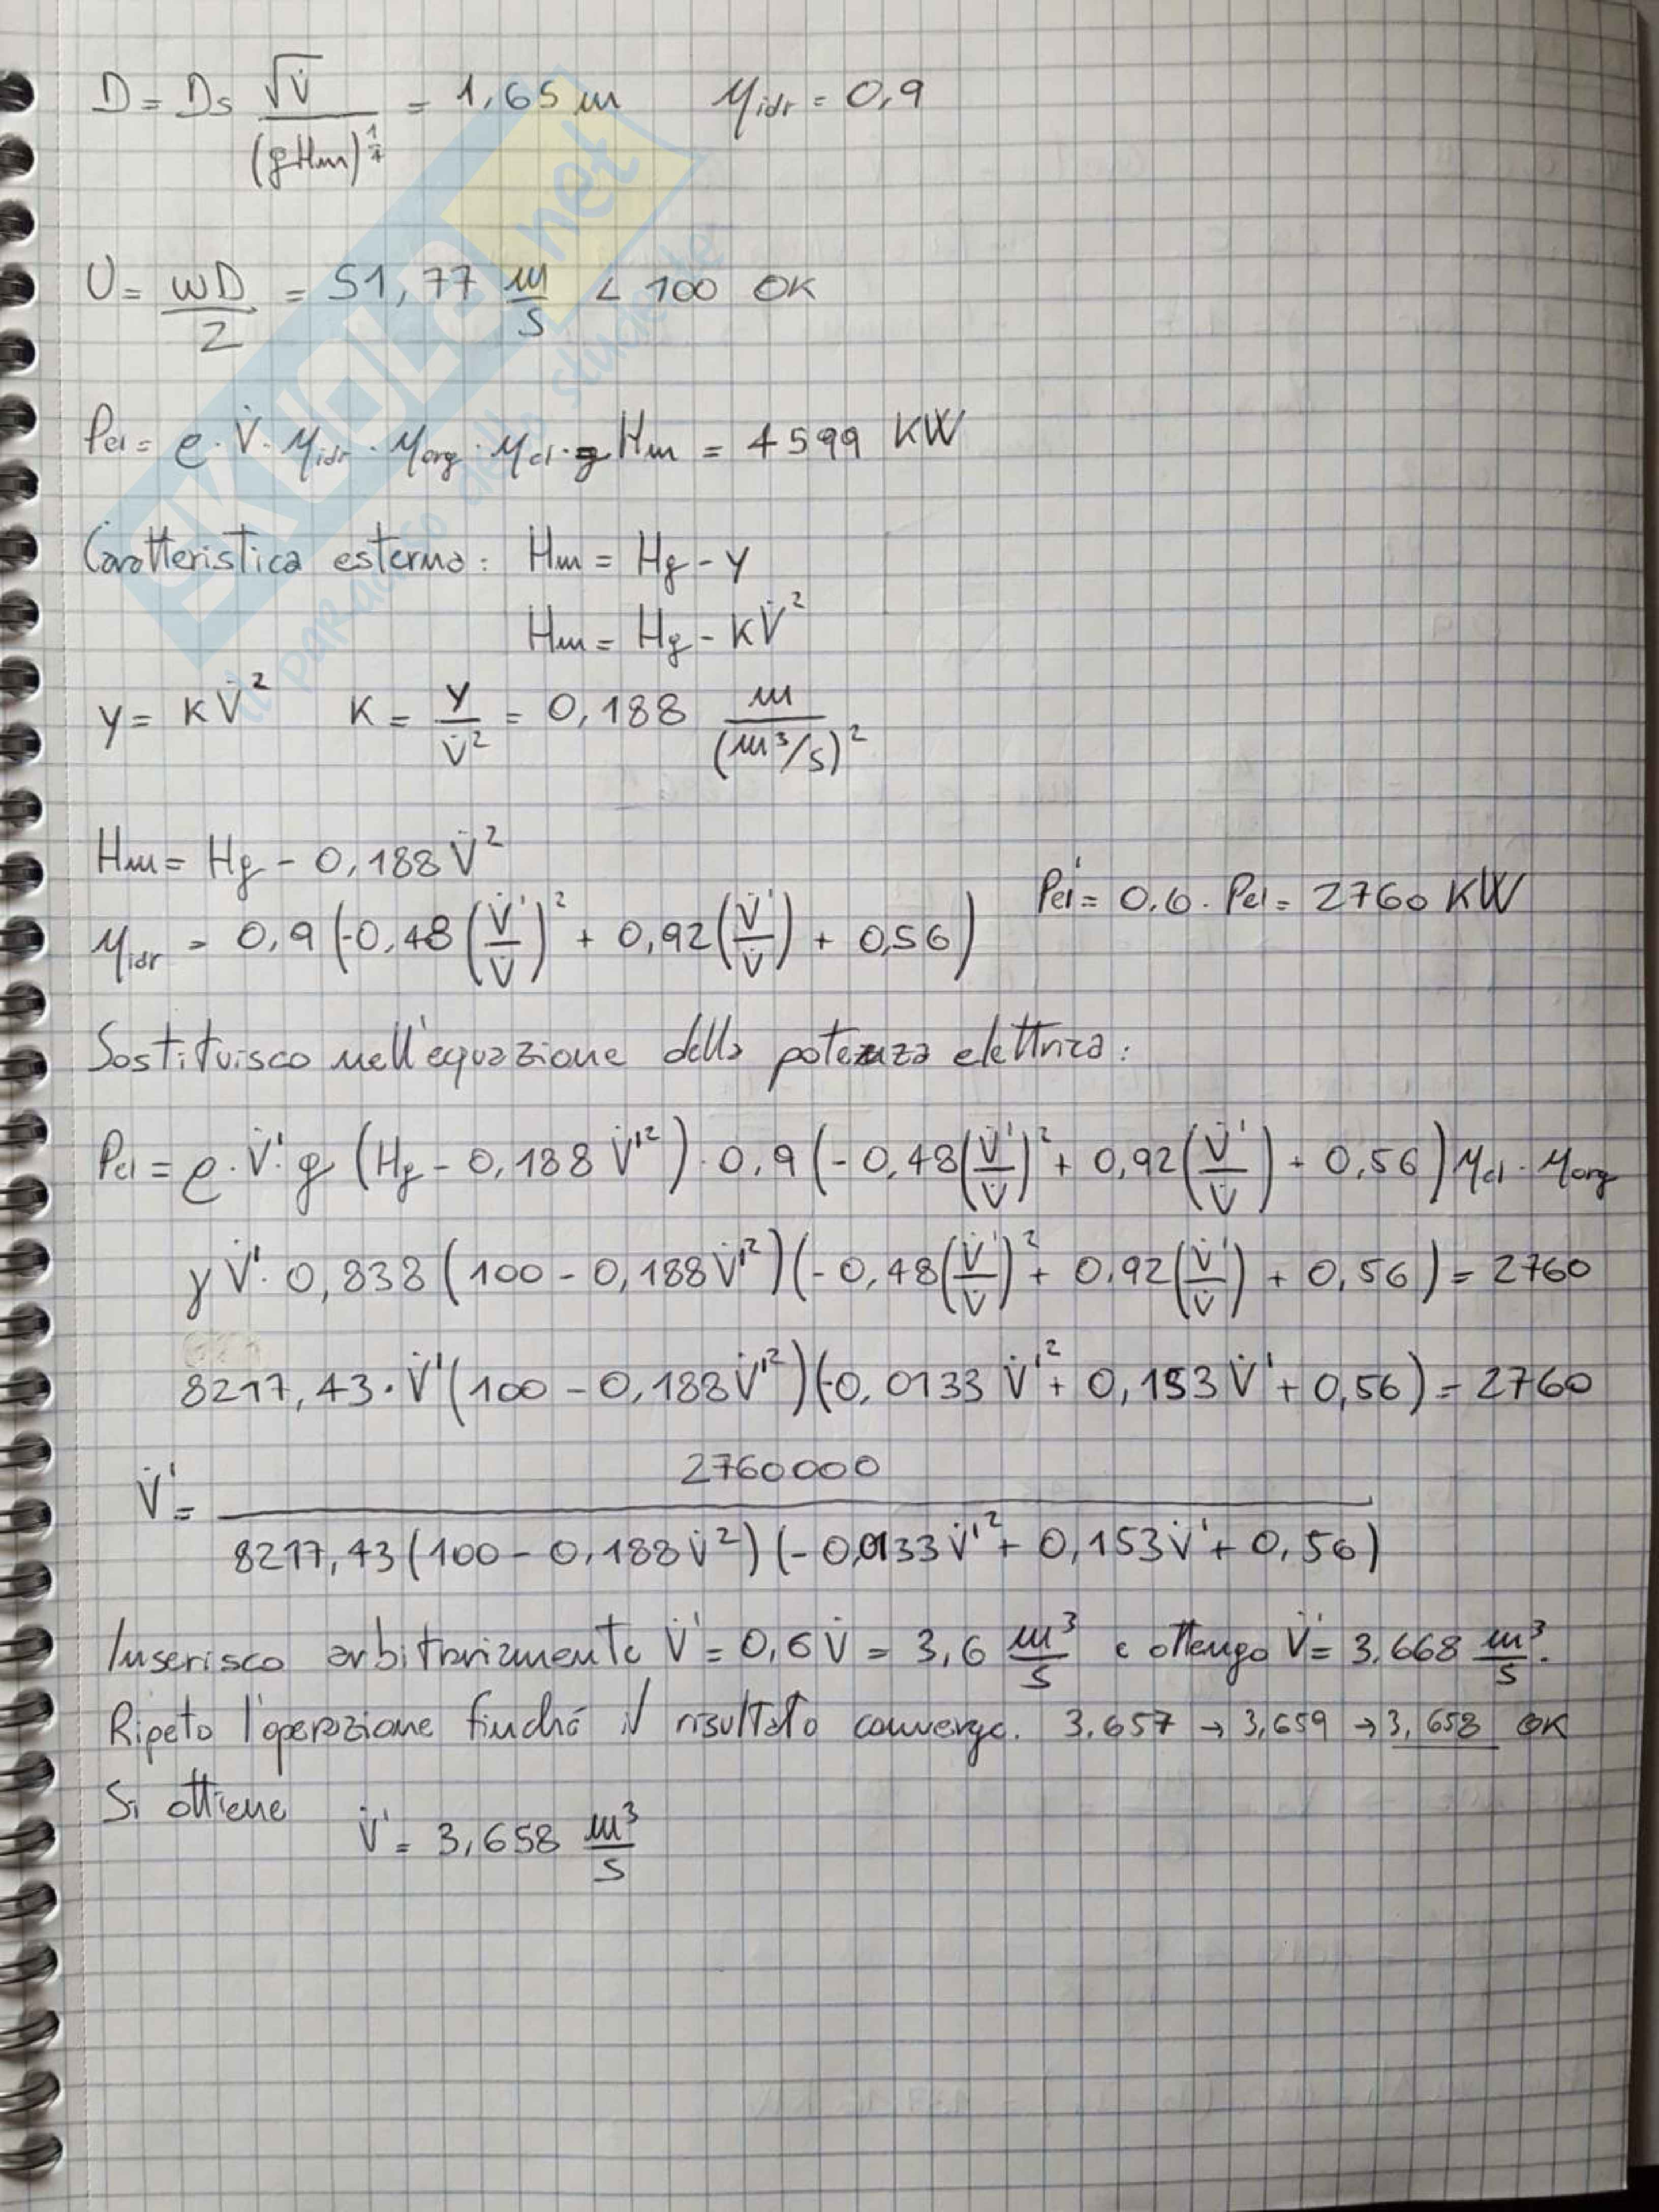 D = Ds √V̇ / (gHm)^(1/4) = 1,65 m   ηidr = 0,9
U = ωD / 2 = 51,77 m/s < 100 OK
Pel = ρ · V̇ · ηidr · ηorg · ηel · g Hm = 4599 KW
Caratteristica esterna: Hm = Hg - Y
Hm = Hg - KV̇²
Y = KV̇²   K = Y / V̇² = 0,188 m / (m³/s)²
Hm = Hg - 0,188 V̇²
Pel' = 0.6 · Pel = 2760 KW
ηidr = 0,9 (-0,48 (V̇'/V̇)² + 0,92 (V̇'/V̇) + 0,56)
Sostituisco nell'equazione della potenza elettrica:
Pel = ρ · V̇' · g (Hg - 0,188 V̇'²) · 0,9 (-0,48 (V̇'/V̇)² + 0,92 (V̇'/V̇) + 0,56) ηel · ηorg
γ V̇' · 0,838 (100 - 0,188 V̇'²) (-0,48 (V̇'/V̇)² + 0.92 (V̇'/V̇) + 0,56) = 2760
8217,43 · V̇' (100 - 0,188 V̇'²) (-0,0133 V̇'² + 0,153 V̇' + 0,56) = 2760
V̇' = 2760000 / 8217,43 (100 - 0,188 V̇²) (-0,0133 V̇'² + 0,153 V̇' + 0,56)
Inserisco arbitrariamente V̇' = 0,6 V̇ = 3,6 m³/s e ottengo V̇' = 3.668 m³/s.
Ripeto l'operazione finché il risultato converge. 3.657 → 3,659 → 3,658 OK
Si ottiene V̇' = 3,658 m³/s
SKUOLA.net
il paradiso dello studente